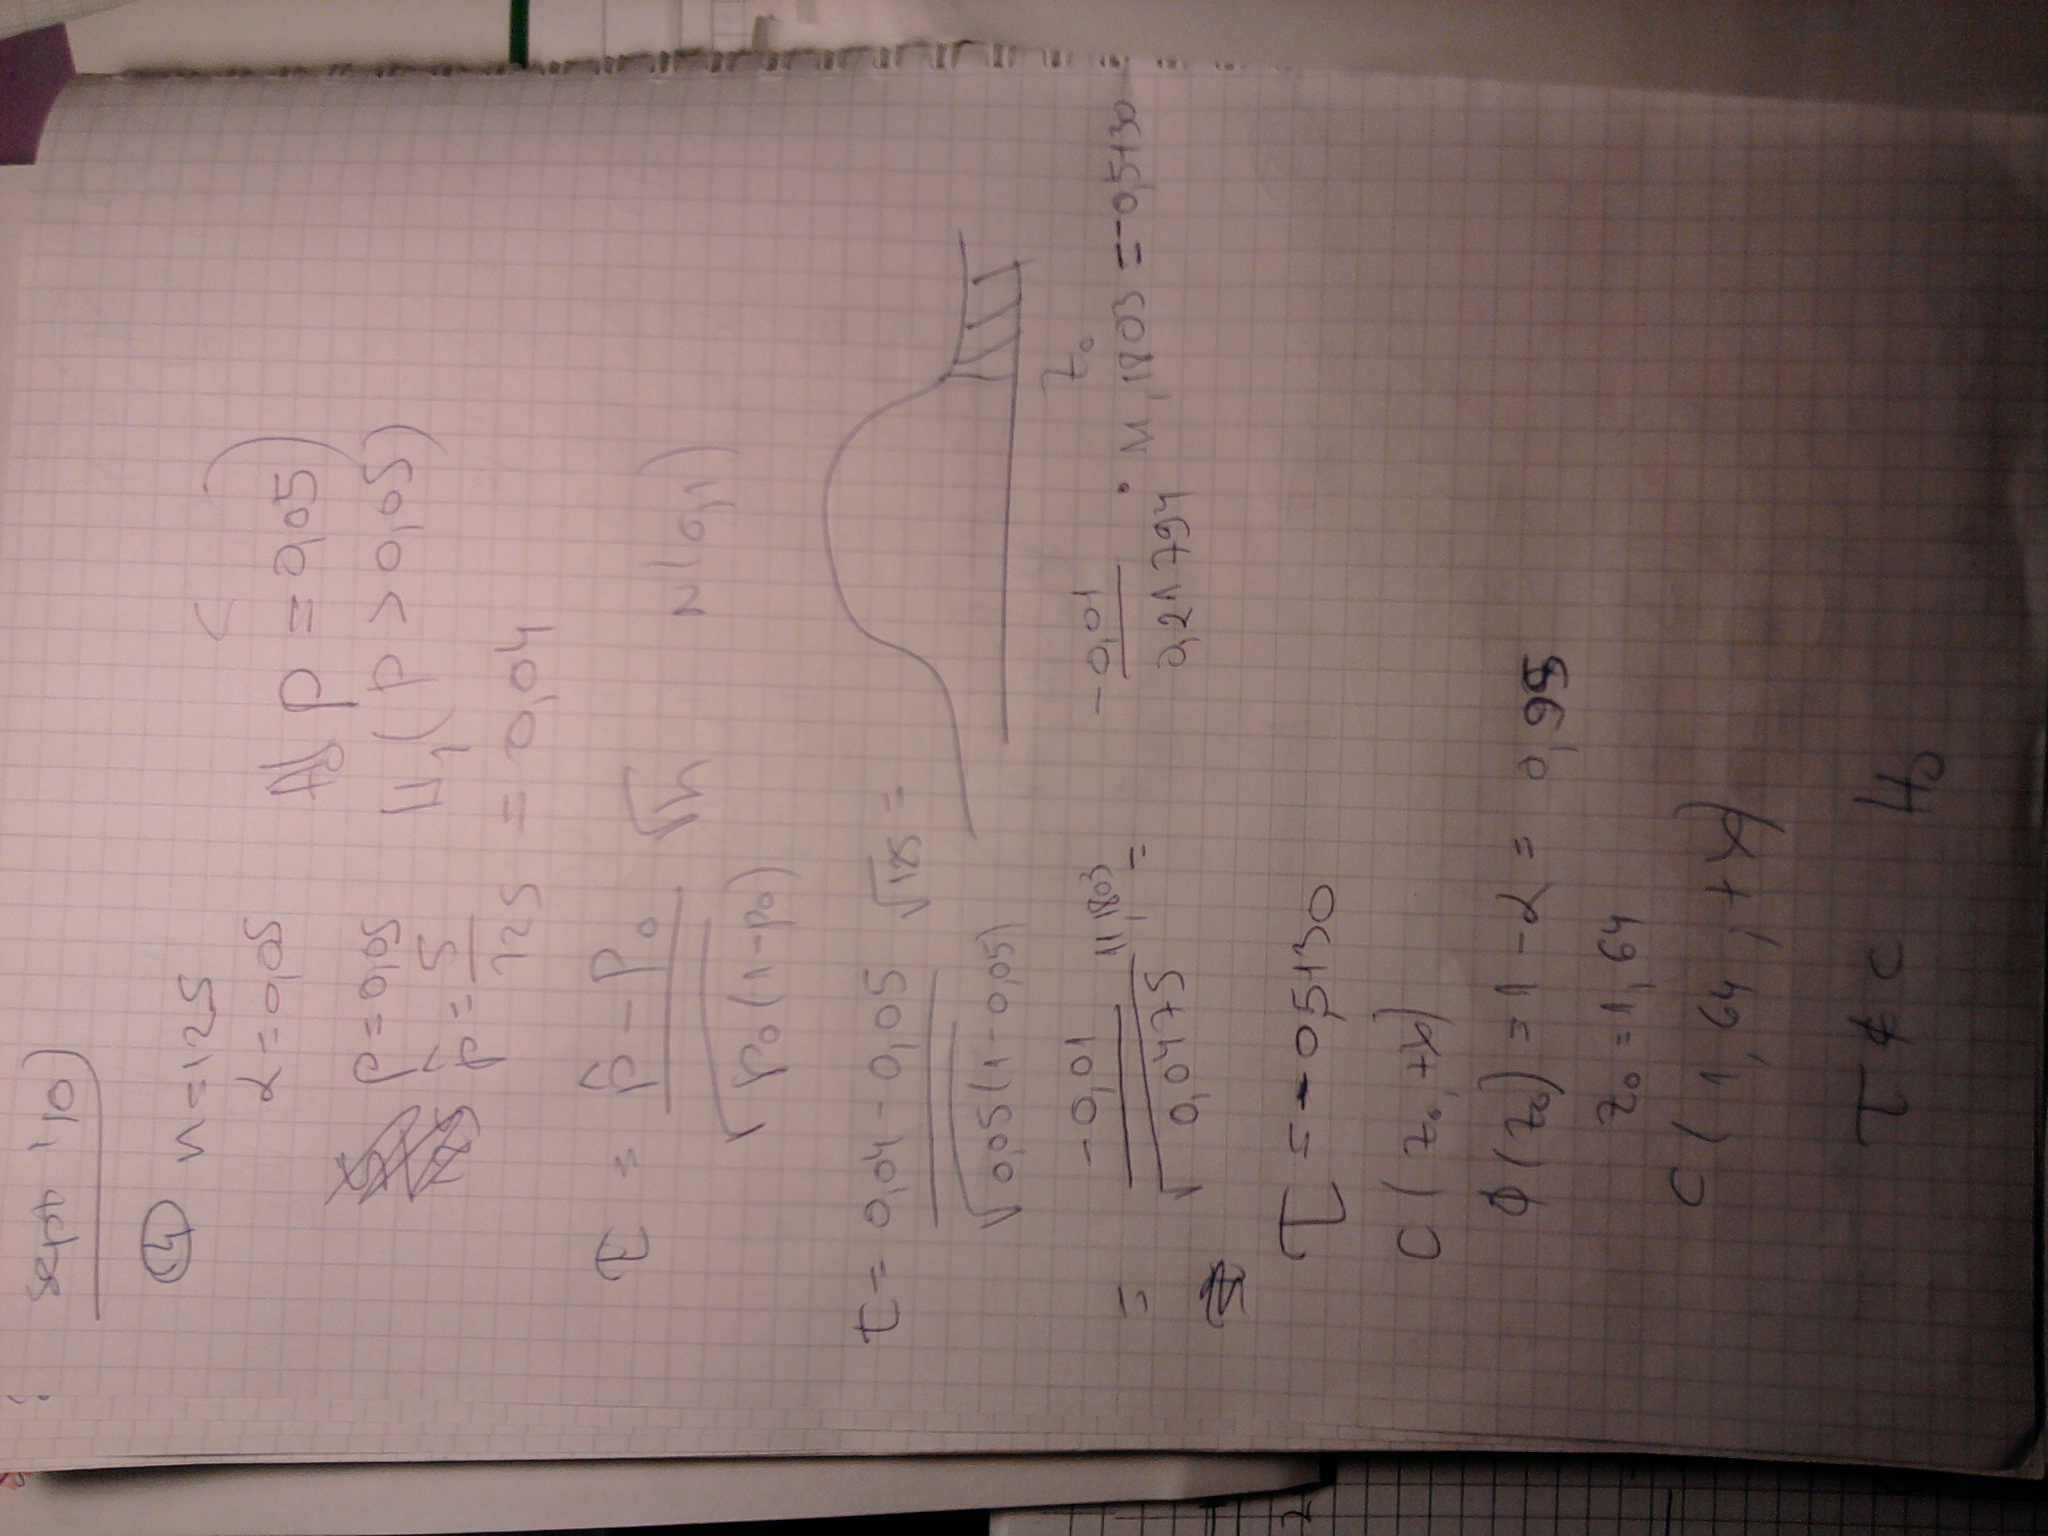 sept 110
④ n=125
α=0,05
H₀ p = 0,05)
p=0,05
H₁(p > 0,05)
p̂=5/125 = 0,04
τ = (p̂-p₀)/√(p₀(1-p₀)) √n N(0,1)
t = (0,04-0,05)/√(0,05(1-0,05)) √125 =
z₀
= -0,01/√0,0475 11,1803 = -0,01/0,21794 · 11,1803 = -0,5130
τ = -0,5130
C(z₀,+∞)
φ(z₀)=1-α= 0,95
z₀=1,64
C(1,64;+∞)
τ∉C H₀
2